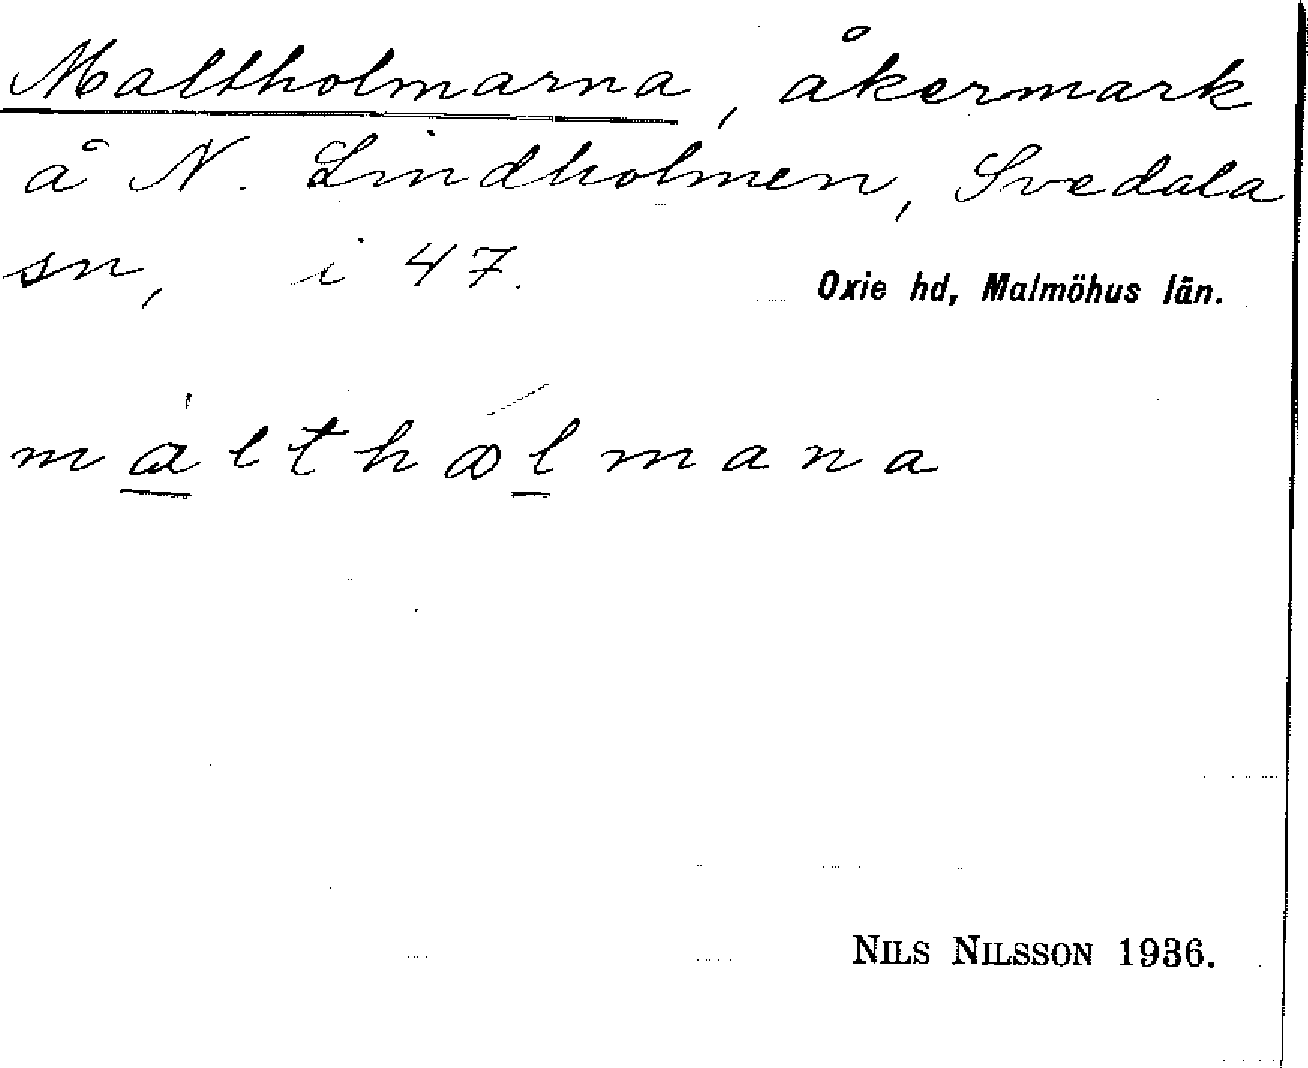 Maltholmarna, åkermark
å N. Lindholmen, Svedala
sn, i 47.
Oxie hd, Malmöhus län.
målthålmana
NILS NILSSON 1936.